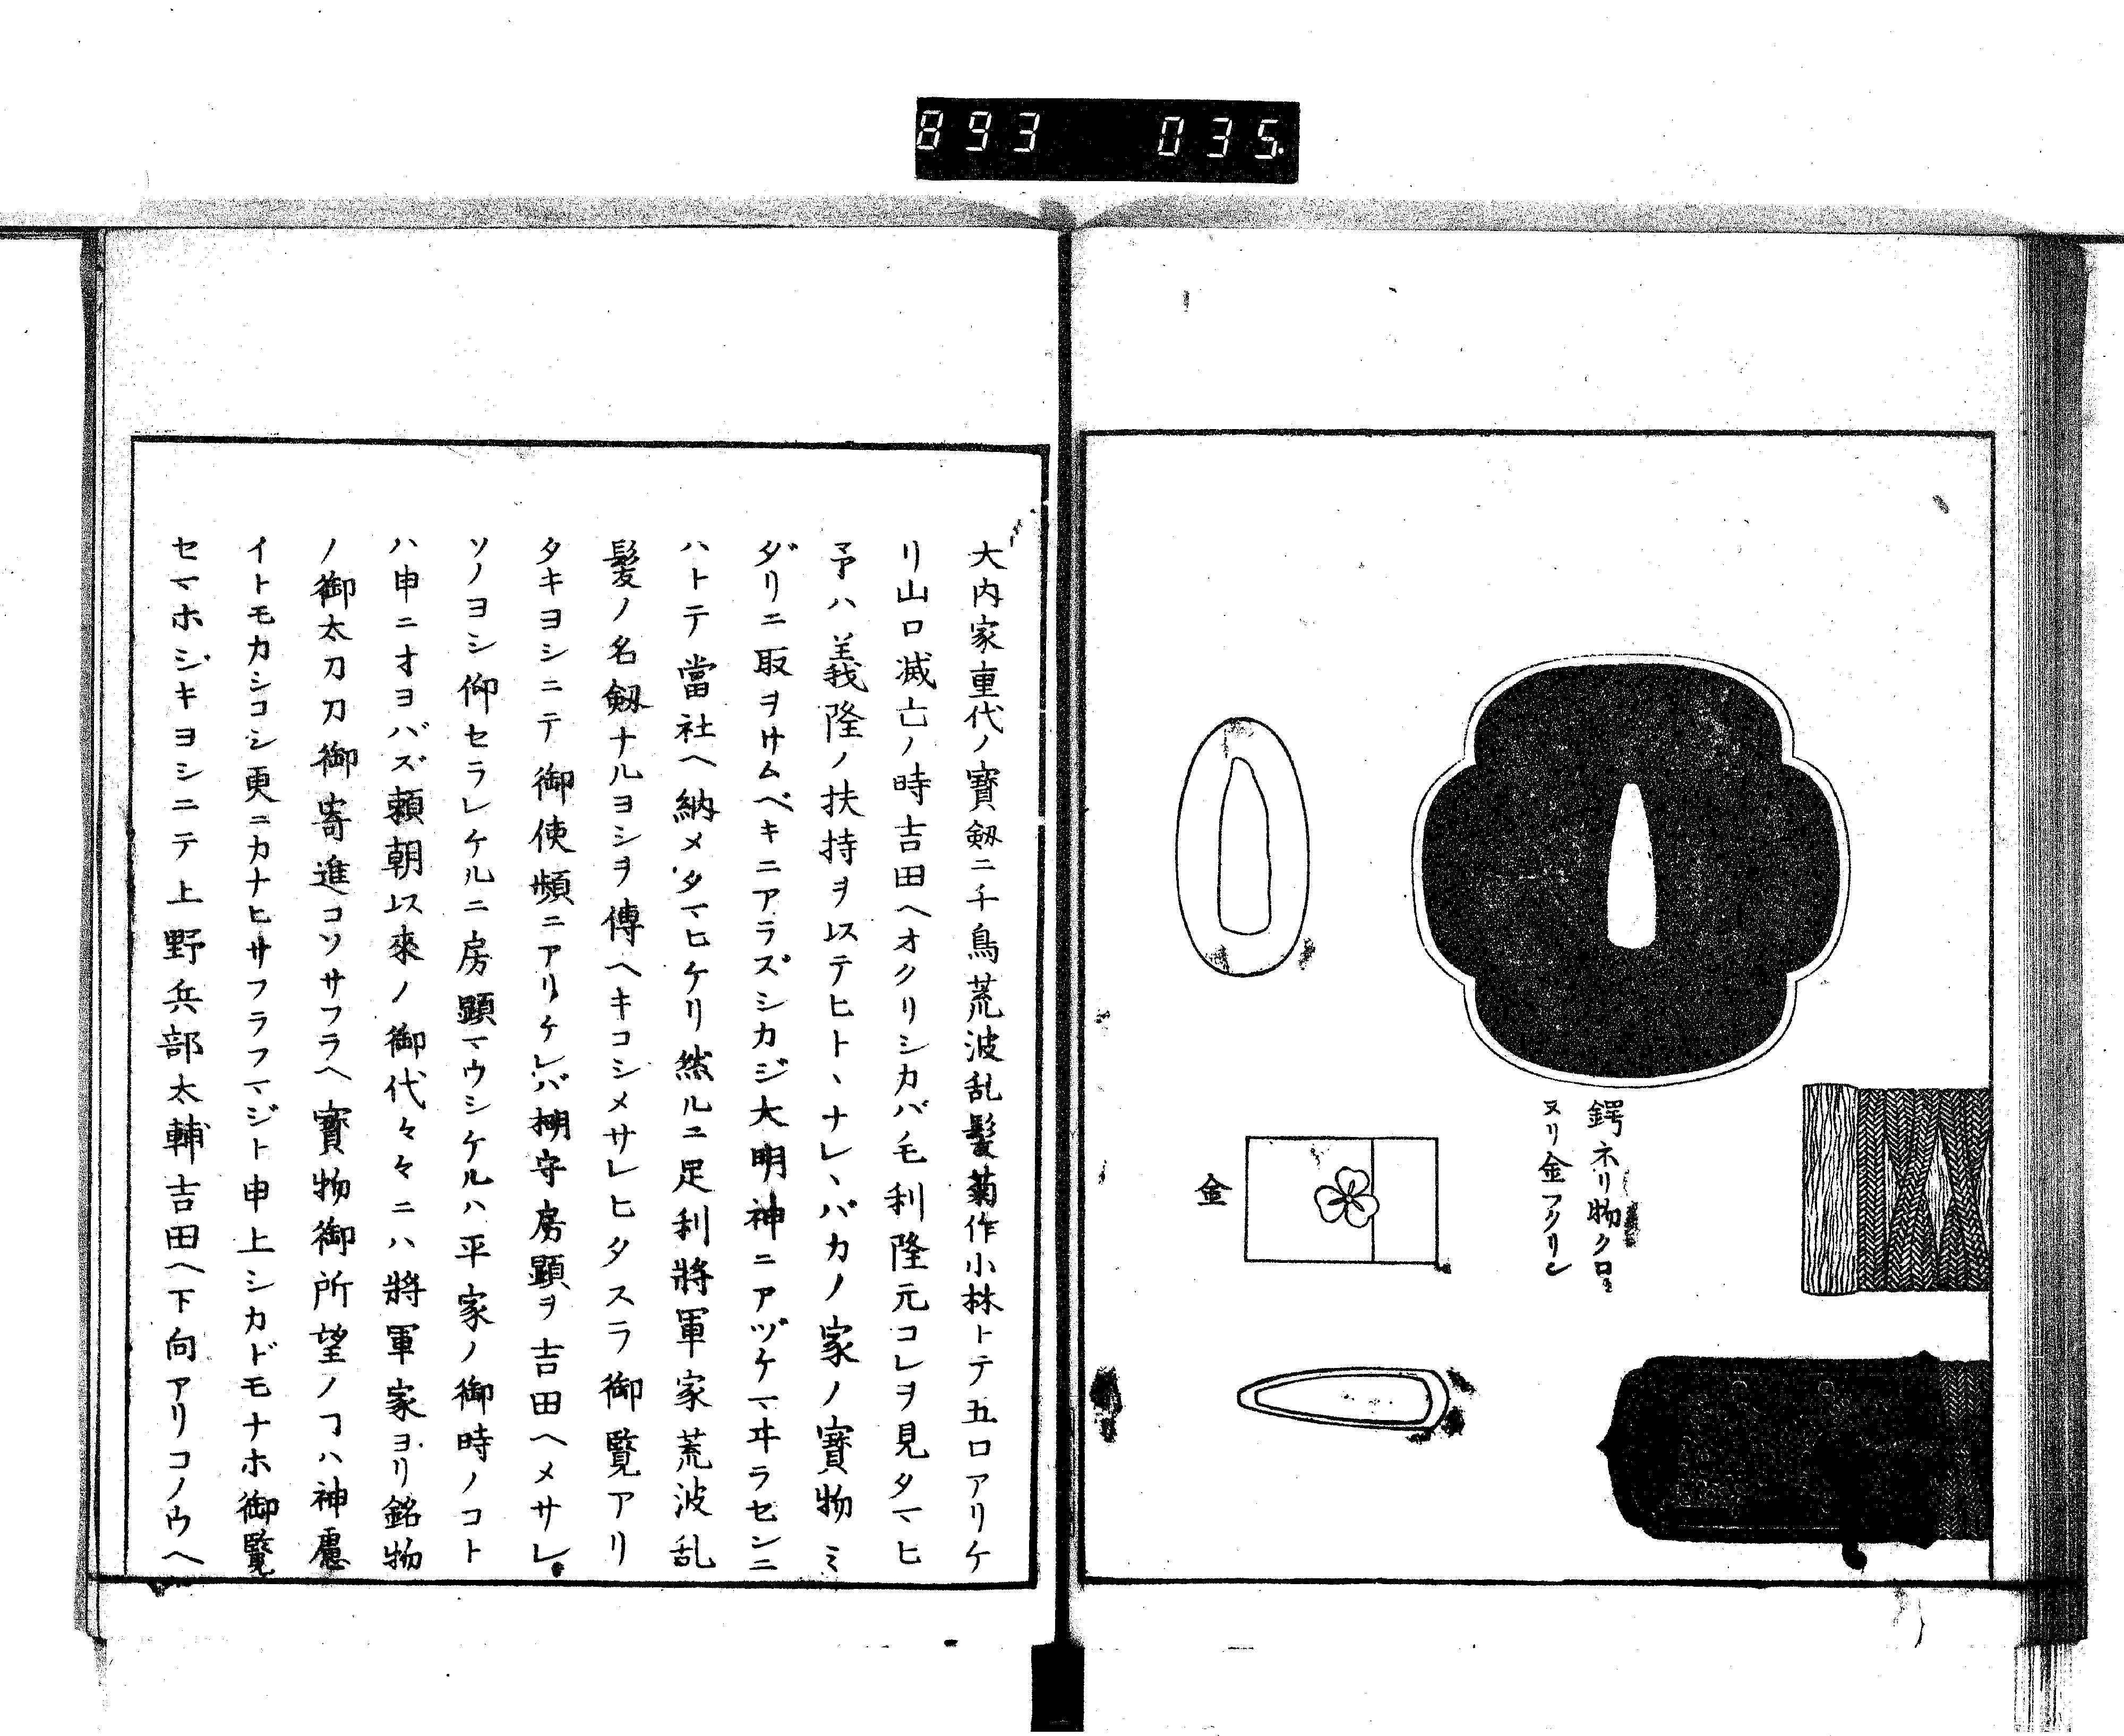 893 035
鍔ネリ物クロ
ヌリ金フクリン
金
大内家重代ノ寳剱ニ千鳥荒波乱髪菊作小林トテ五口アリケ
リ山口滅亡ノ時吉田ヘオクリシカバ毛利隆元コレヲ見タマヒ
予ハ義隆ノ扶持ヲ以テヒトヽナレヽバカノ家ノ寳物ミ
ダリニ取ヲサムベキニアラズシカジ大明神ニアヅケマヰラセンニ
ハトテ當社ヘ納メタマヒケリ然ルニ足利將軍家荒波乱
髪ノ名剱ナルヨシヲ傳ヘキコシメサレヒタスラ御覽アリ
タキヨシニテ御使頻ニアリケレバ棚守房顯ヲ吉田ヘメサレ
ソノヨシ仰セラレケルニ房顯マウシケルハ平家ノ御時ノコト
ハ申ニオヨバズ頼朝以來ノ御代々々ニハ將軍家ヨリ銘物
ノ御太刀刀御寄進コソサフラヘ寳物御所望ノヿハ神慮
イトモカシコシ更ニカナヒサフラフマジト申上シカドモナホ御覽
セマホシキヨシニテ上野兵部太輔吉田ヘ下向アリコノウヘ